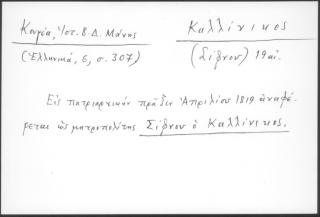 Κουγέα, Ἱστ. Β. Δ. Μάνης
Καλλίνικος
(Ἑλληνικά, 6, σ. 307)
(Σίφνου) 19 αἰ.
Εἰς πατριαρχικὴν πρᾶξιν Ἀπριλίου 1819 ἀναφέ-
ρεται ὡς μητροπολίτης Σίφνου ὁ Καλλίνικος.